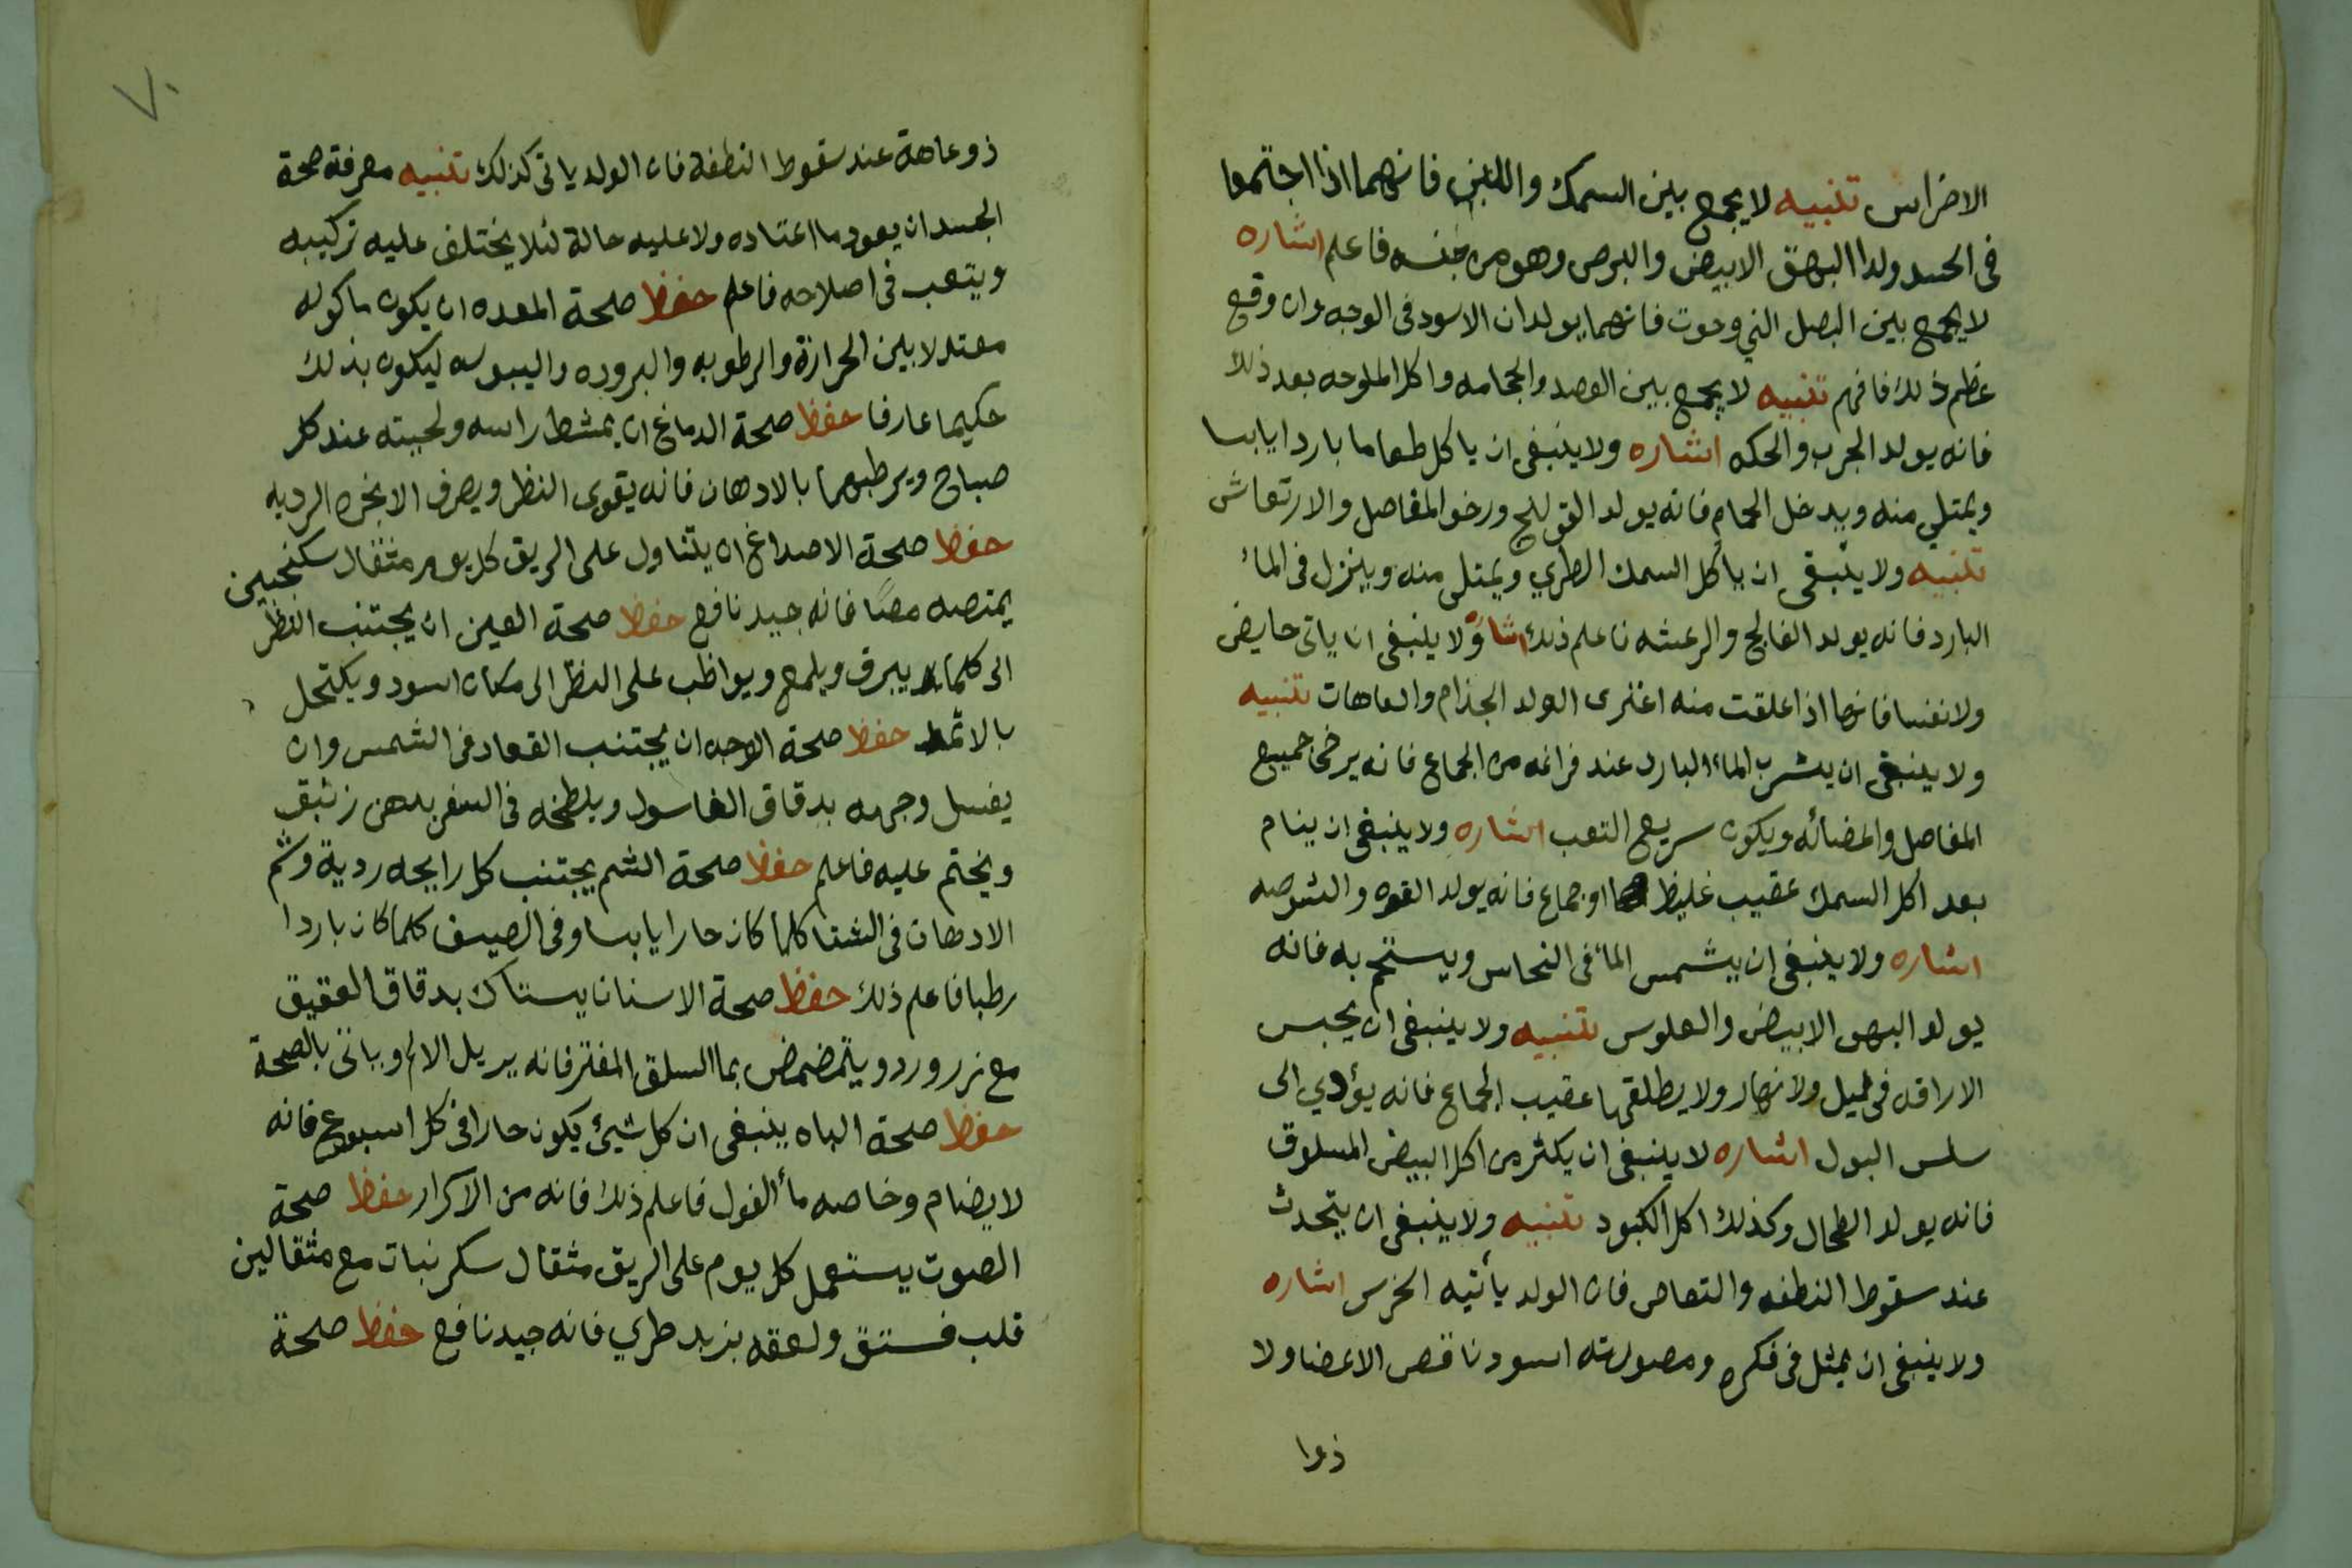 الاضراس تنبيه لا يجمع بين السمك واللبن فانهما اذا اجتمعا
فى الجسد ولدا البهق الابيض والبرص وهو من جنسه فاعلم اشاره
لا يجمع بين البصل الني وحوت فانهما يولدان الاسود فى الوجه وان وقع
عظم ذلك فافهم تنبيه لا يجمع بين الفصد والحجامه واكل الملوحه بعد ذلك
فانه يولد الجرب والحكه اشاره ولا ينبغى ان ياكل طعاما باردا يابسا
ويمتلي منه ويدخل الحمام فانه يولد القولنج ورخو المفاصل والارتعاش
تنبيه ولا ينبغى ان ياكل السمك الطري ويمتلى منه وينزل فى الماء
البارد فانه يولد الفالج والرعشه فاعلم ذلك اشاره ولا ينبغى ان ياتى حايض
ولا نفسا فانها اذا علقت منه اعترى الولد الجذام والعاهات تنبيه
ولا ينبغى ان يشرب الماء البارد عند فراغه من الجماع فانه يرخى جميع
المفاصل واعضائه ويكون سريع التعب اشاره ولا ينبغى ان ينام
بعد اكل السمك عقيب غليظ او جماع فانه يولد القوه والشوصه
اشاره ولا ينبغى ان يشمس الماء فى النحاس ويستحم به فانه
يولد البهق الابيض والعلوس تنبيه ولا ينبغى ان يحبس
الاراقه فى ليل ولا نهار ولا يطلقها عقيب الجماع فانه يؤدي الى
سلس البول اشاره لا ينبغى ان يكثر من اكل البيض المسلوق
فانه يولد الطحال وكذلك اكل الكبود تنبيه ولا ينبغى ان يتحدث
عند سقوط النطفه والتعاص فان الولد يأتيه الخرس اشاره
ولا ينبغى ان يمثل فى فكره ومصورته اسود ناقص الاعضا ولا
ذوا
٧٠
ذو عاهة عند سقوط النطفة فان الولد ياتى كذلك تنبيه معرفة صحة
الجسد ان يعود ما اعتاده ولا عليه حالة لئلا يختلف عليه تركيبه
ويتعب فى اصلاحه فاعلم حفظ صحة المعده ان يكون ماكوله
معتدلا بين الحرارة والرطوبه والبروده واليبوسه ليكون بذلك
حكيما عارفا حفظ صحة الدماغ ان يمشط راسه ولحيته عند كل
صباح ويرطبهما بالادهان فانه يقوى النظر ويصرف الابخره الرديه
حفظ صحة الاصداغ ان يتناول على الريق كل يوم مثقال سكنجبين
يمتصه مصًا فانه جيد نافع حفظ صحة العين ان يجتنب النظر
الى كلما يبرق ويلمع ويواظب على النظر الى مكان اسود ويكتحل
بالاثمد حفظ صحة الوجه ان يجتنب القعاد فى الشمس وان
يغسل وجهه بدقاق الغاسول ويلطخه فى السفر بدهن زئبق
ويختم عليه فاعلم حفظ صحة الشم يجتنب كل رايحه ردية وشم
الادهان فى الشتا كلما كان حارا يابسا وفى الصيف كلما كان باردا
رطبا فاعلم ذلك حفظ صحة الاسنان يستاك بدقاق العقيق
مع زر ورد ويتمضمض بما السلق المفتر فانه يزيل الالم وياتى بالصحة
حفظ صحة الباه ينبغى ان كل شيئ يكون حارا فى كل اسبوع فانه
لا يضام وخاصه مأ الفول فاعلم ذلك فانه من الاكرار حفظ صحة
الصوت يستعمل كل يوم على الريق مثقال سكر نبات مع مثقالين
قلب فستق ولعقه بزبد طري فانه جيد نافع حفظ صحة